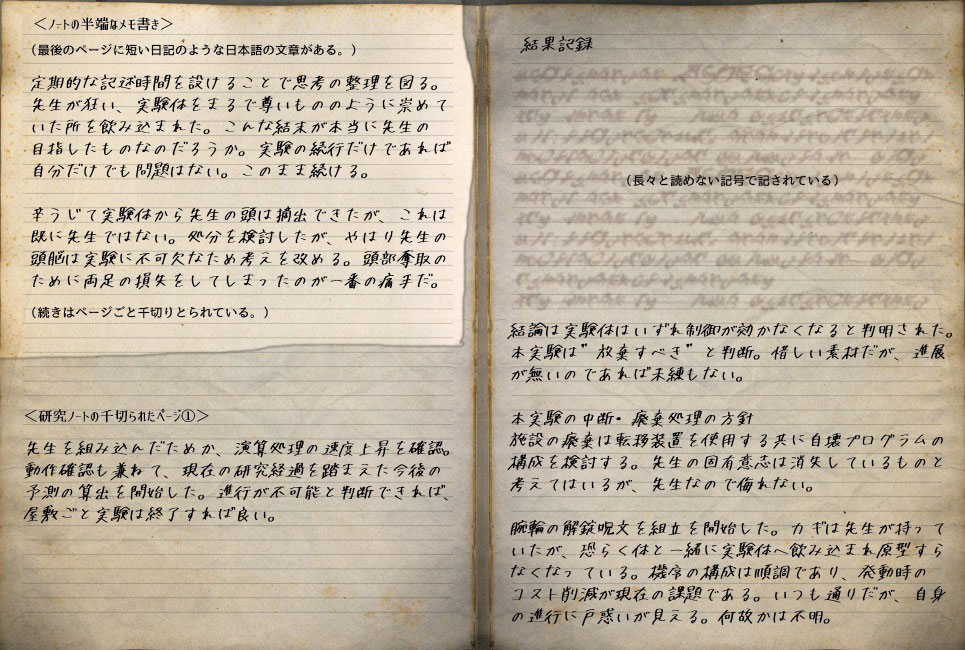 ＜ノートの半端なメモ書き＞
（最後のページに短い日記のような日本語の文章がある。）
定期的な記述時間を設けることで思考の整理を図る。
先生が狂い、実験体をまるで尊いもののように崇めて
いた所を飲み込まれた。こんな結末が本当に先生の
目指したものなのだろうか。実験の続行だけであれば
自分だけでも問題はない。このまま続ける。
辛うじて実験体から先生の頭は摘出できたが、これは
既に先生ではない。処分を検討したが、やはり先生の
頭脳は実験に不可欠なため考えを改める。頭部奪取の
ために両足の損失をしてしまったのが一番の痛手だ。
（続きはページごと千切りとられている。）
＜研究ノートの千切られたページ①＞
先生を組み込んだためか、演算処理の速度上昇を確認。
動作確認も兼ねて、現在の研究経過を踏まえた今後の
予測の算出を開始した。進行が不可能と判断できれば、
屋敷ごと実験は終了すれば良い。
結果記録
（長々と読めない記号で記されている）
結論は実験体はいずれ制御が効かなくなると判明された。
本実験は”放棄すべき”と判断。惜しい素材だが、進展
が無いのであれば未練もない。
本実験の中断・廃棄処理の方針
施設の廃棄は転移装置を使用する共に自壊プログラムの
構成を検討する。先生の固有意志は消失しているものと
考えてはいるが、先生なので侮れない。
腕輪の解錠呪文を組立を開始した。カギは先生が持って
いたが、恐らく体と一緒に実験体へ飲み込まれ原型すら
なくなっている。機序の構成は順調であり、発動時の
コスト削減が現在の課題である。いつも通りだが、自身
の進行に戸惑いが見える。何故かは不明。